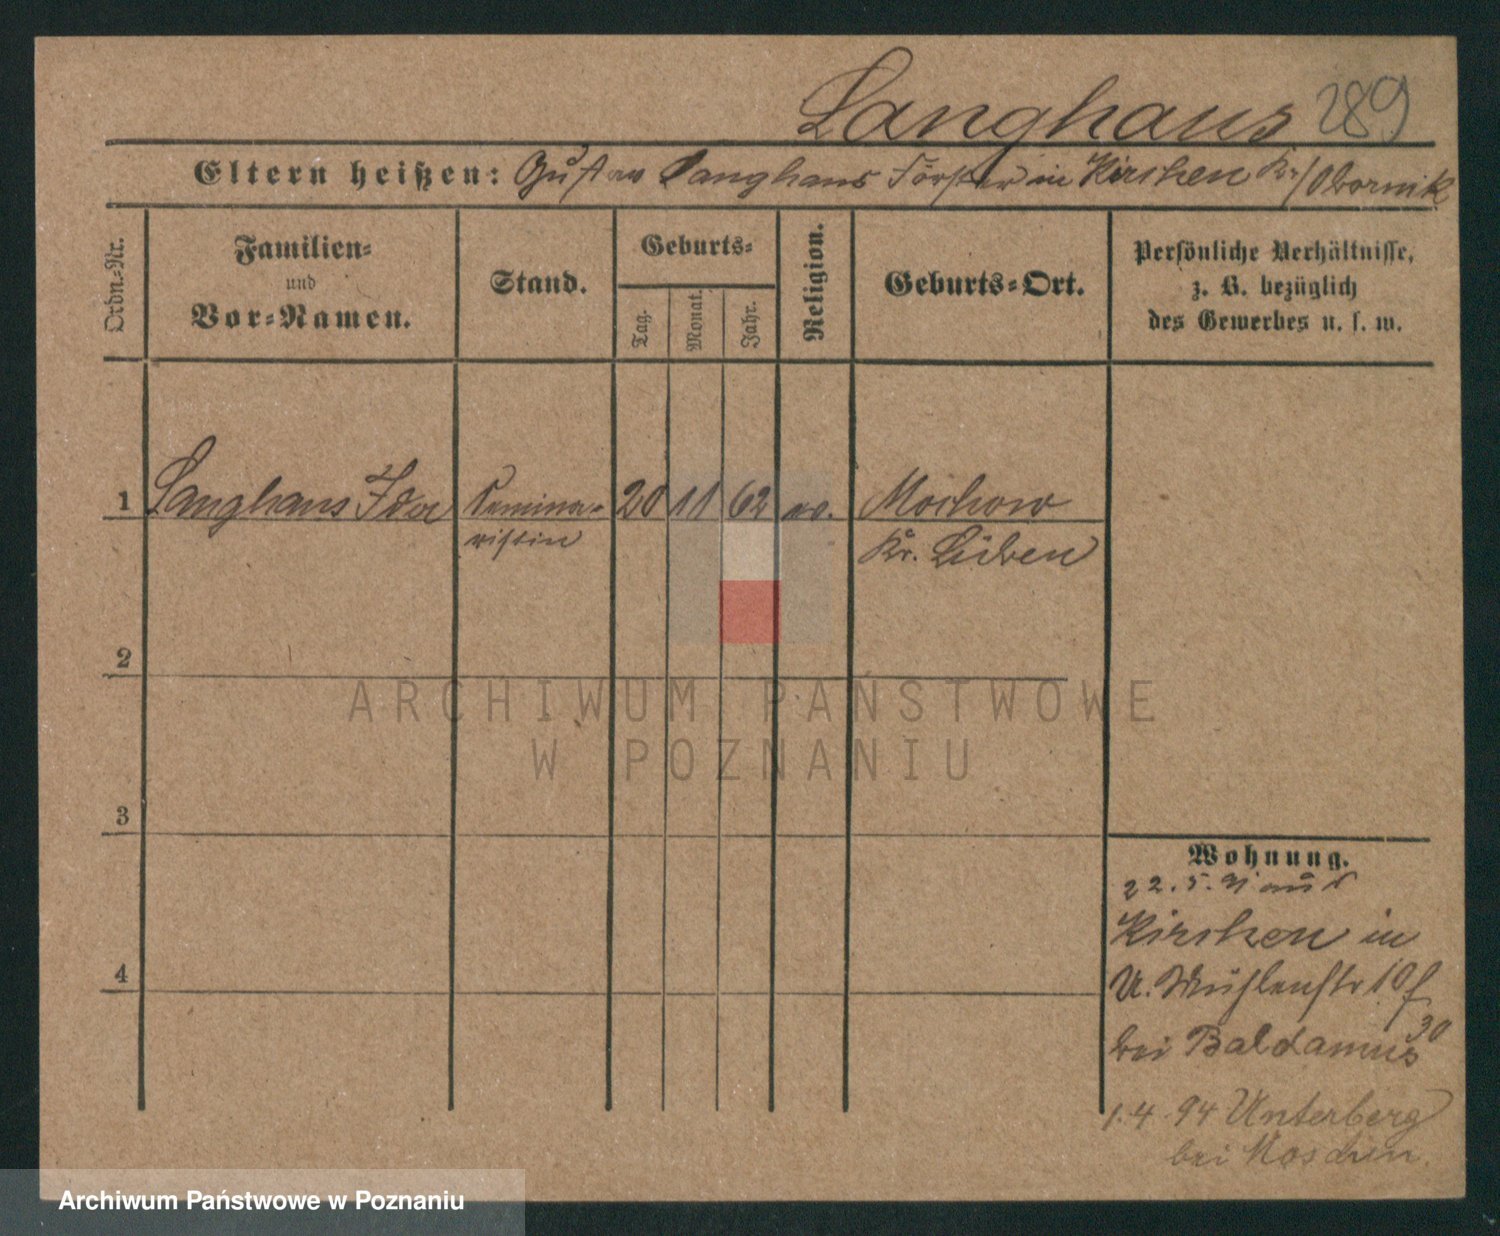 Langhaus 289
Eltern heißen: Gustav Langhans Förster in Kirchen Kr/Obornik
Ordn.-Nr.
Familien-
und
Vor-Namen.
Stand.
Geburts-
Tag.
Monat.
Jahr.
Religion.
Geburts-Ort.
Persönliche Verhältnisse,
z. B. bezüglich
des Gewerbes u. s. w.
1 Langhans Ida Semina- 20 11 62 ev. Mochow
ristin Kr. Lüben
2
3
4
Wohnung.
22.5.91 aus
Kirchen in
U. Mühlenstr 10f
bei Baldamus 30
1.4.94 Unterberg
bei Moschin.
ARCHIWUM PAŃSTWOWE
W POZNANIU
Archiwum Państwowe w Poznaniu